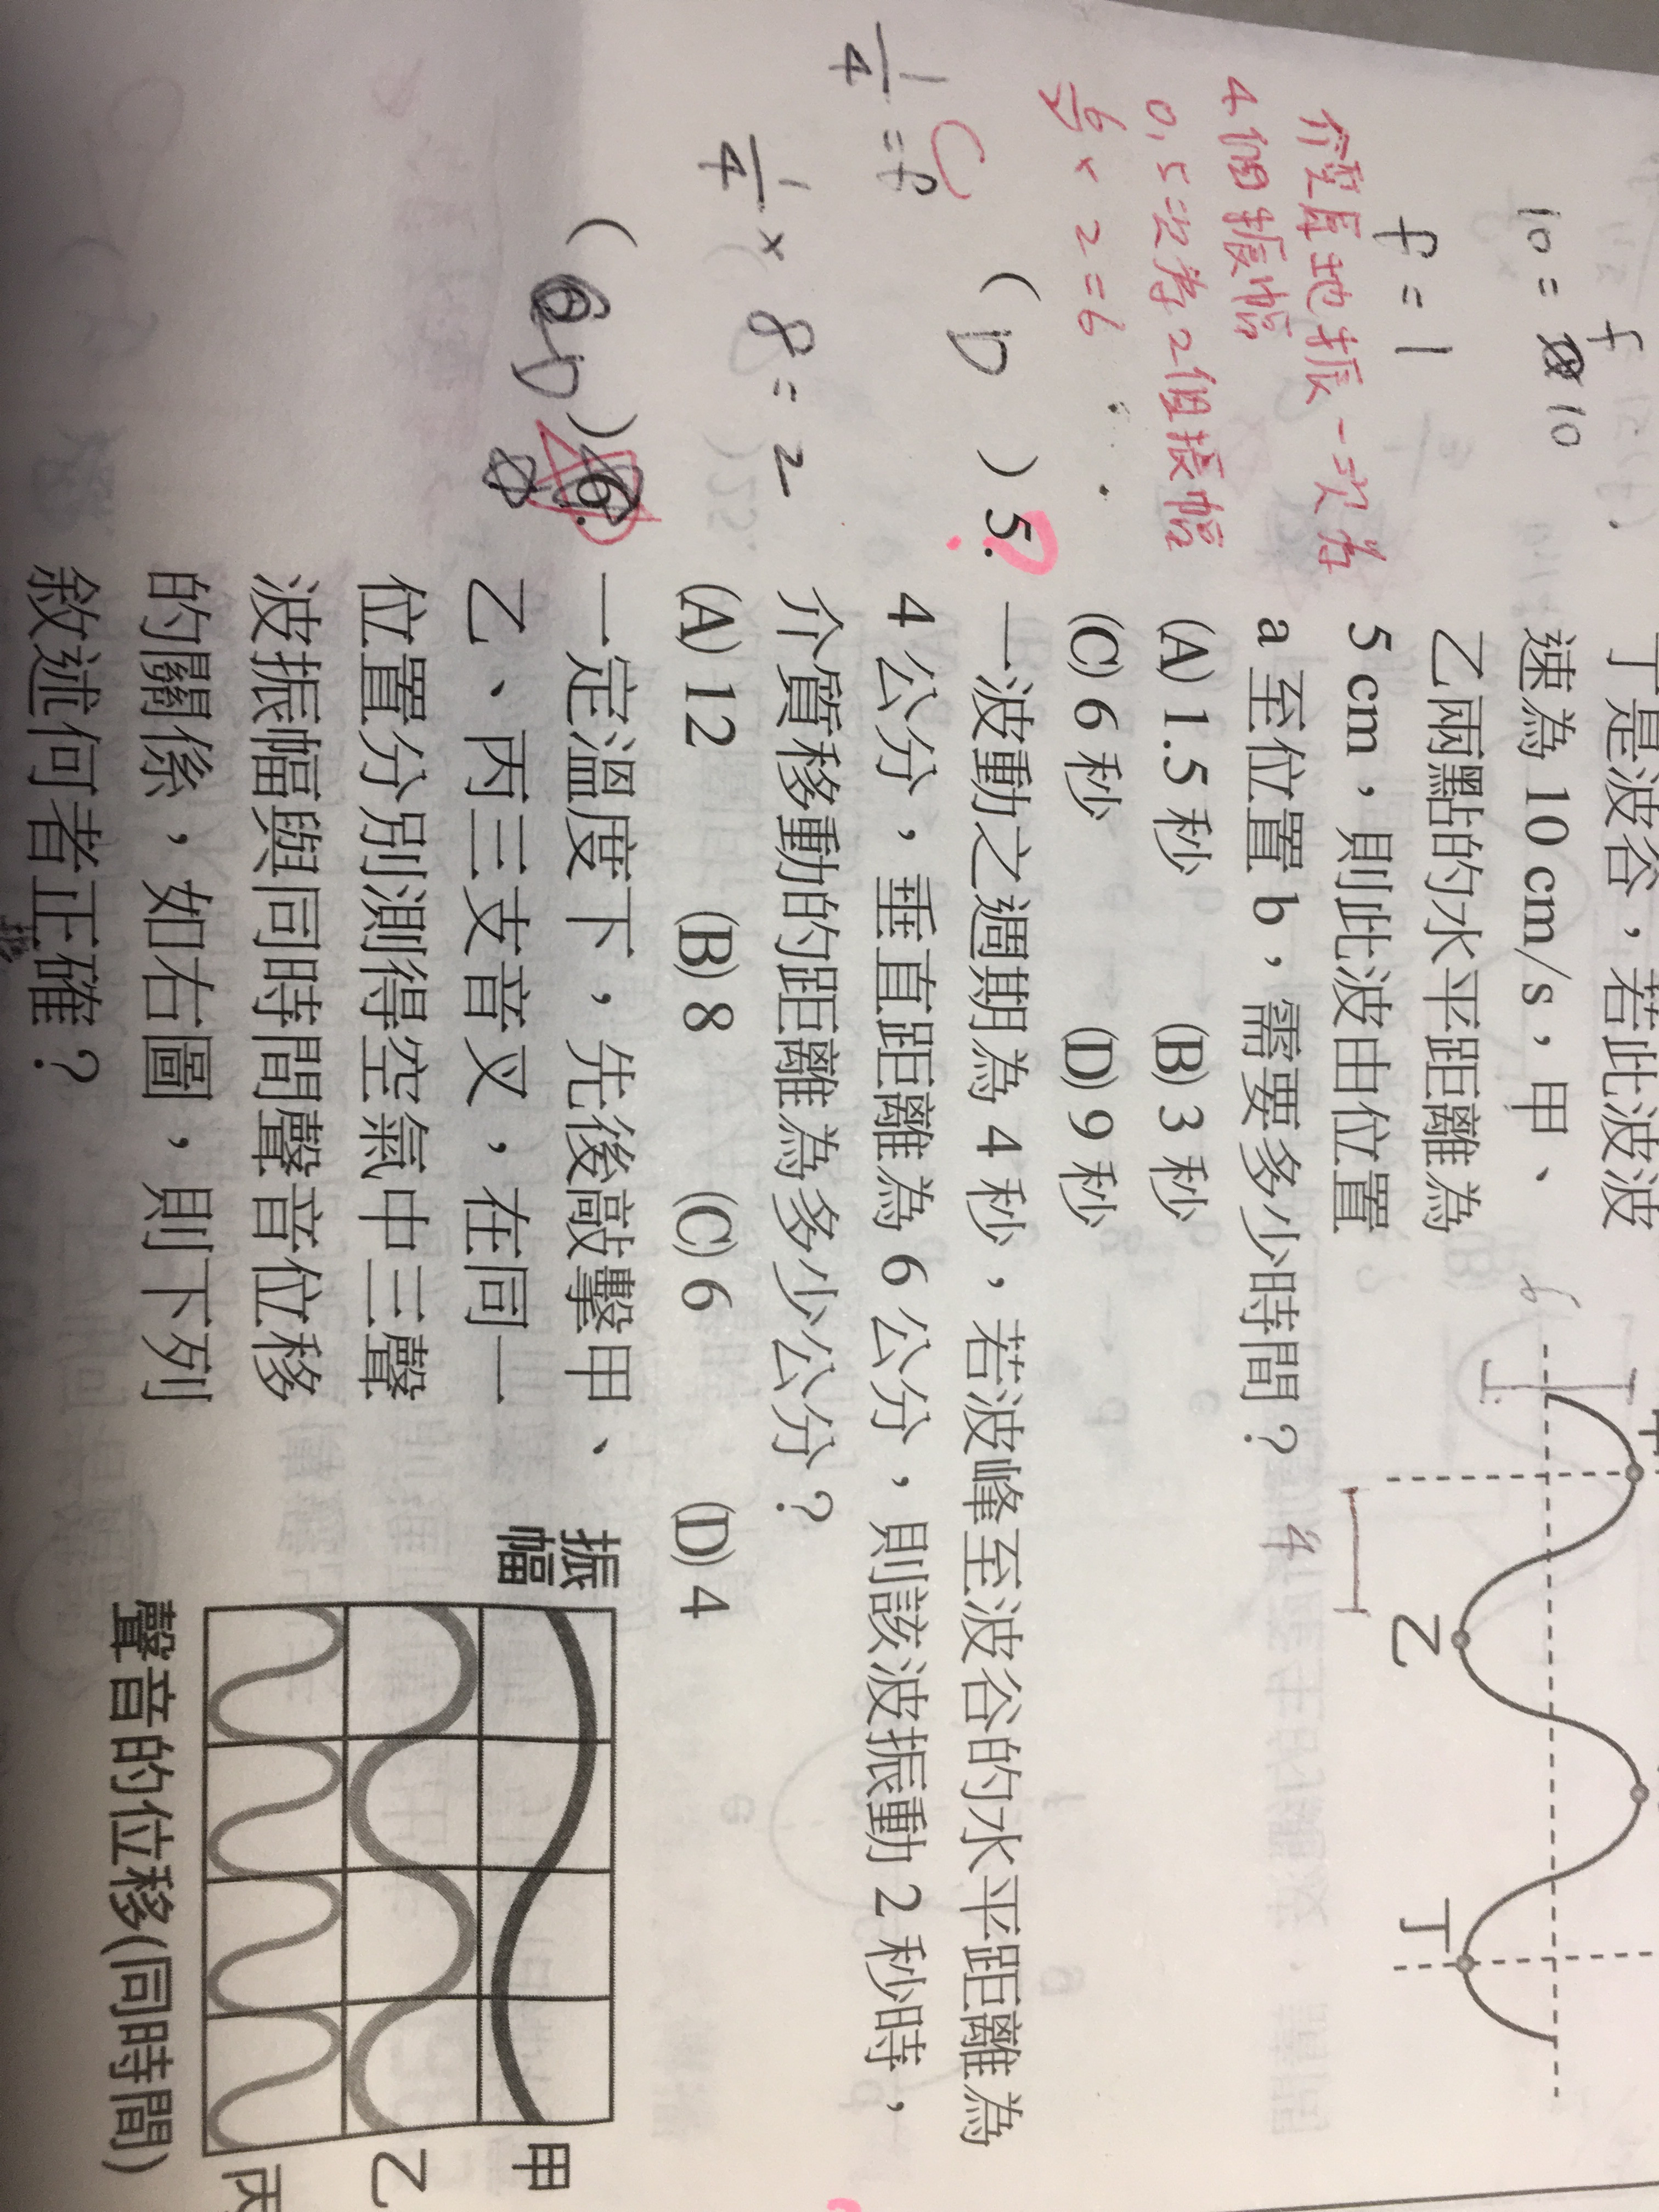 丁是波谷，若此波波
速為 10 cm/s，甲、
乙兩點的水平距離為
5 cm，則此波由位置
a 至位置 b，需要多少時間？
(A) 1.5 秒 (B) 3 秒
(C) 6 秒 (D) 9 秒
乙
丁
10 = 10
f = 1
介質原地振一次為
4個振幅
0.5次為2個振幅
6/2 × 2 = 6
C
1/4 = f
1/4 × 8 = 2
( D ) 5. 一波動之週期為 4 秒，若波峰至波谷的水平距離為
4 公分，垂直距離為 6 公分，則該波振動 2 秒時，
介質移動的距離為多少公分？
(A) 12 (B) 8 (C) 6 (D) 4
( D ) 6. 一定溫度下，先後敲擊甲、
乙、丙三支音叉，在同一
位置分別測得空氣中三聲
波振幅與同時間聲音位移
的關係，如右圖，則下列
敘述何者正確？
振幅
甲
乙
丙
聲音的位移(同時間)